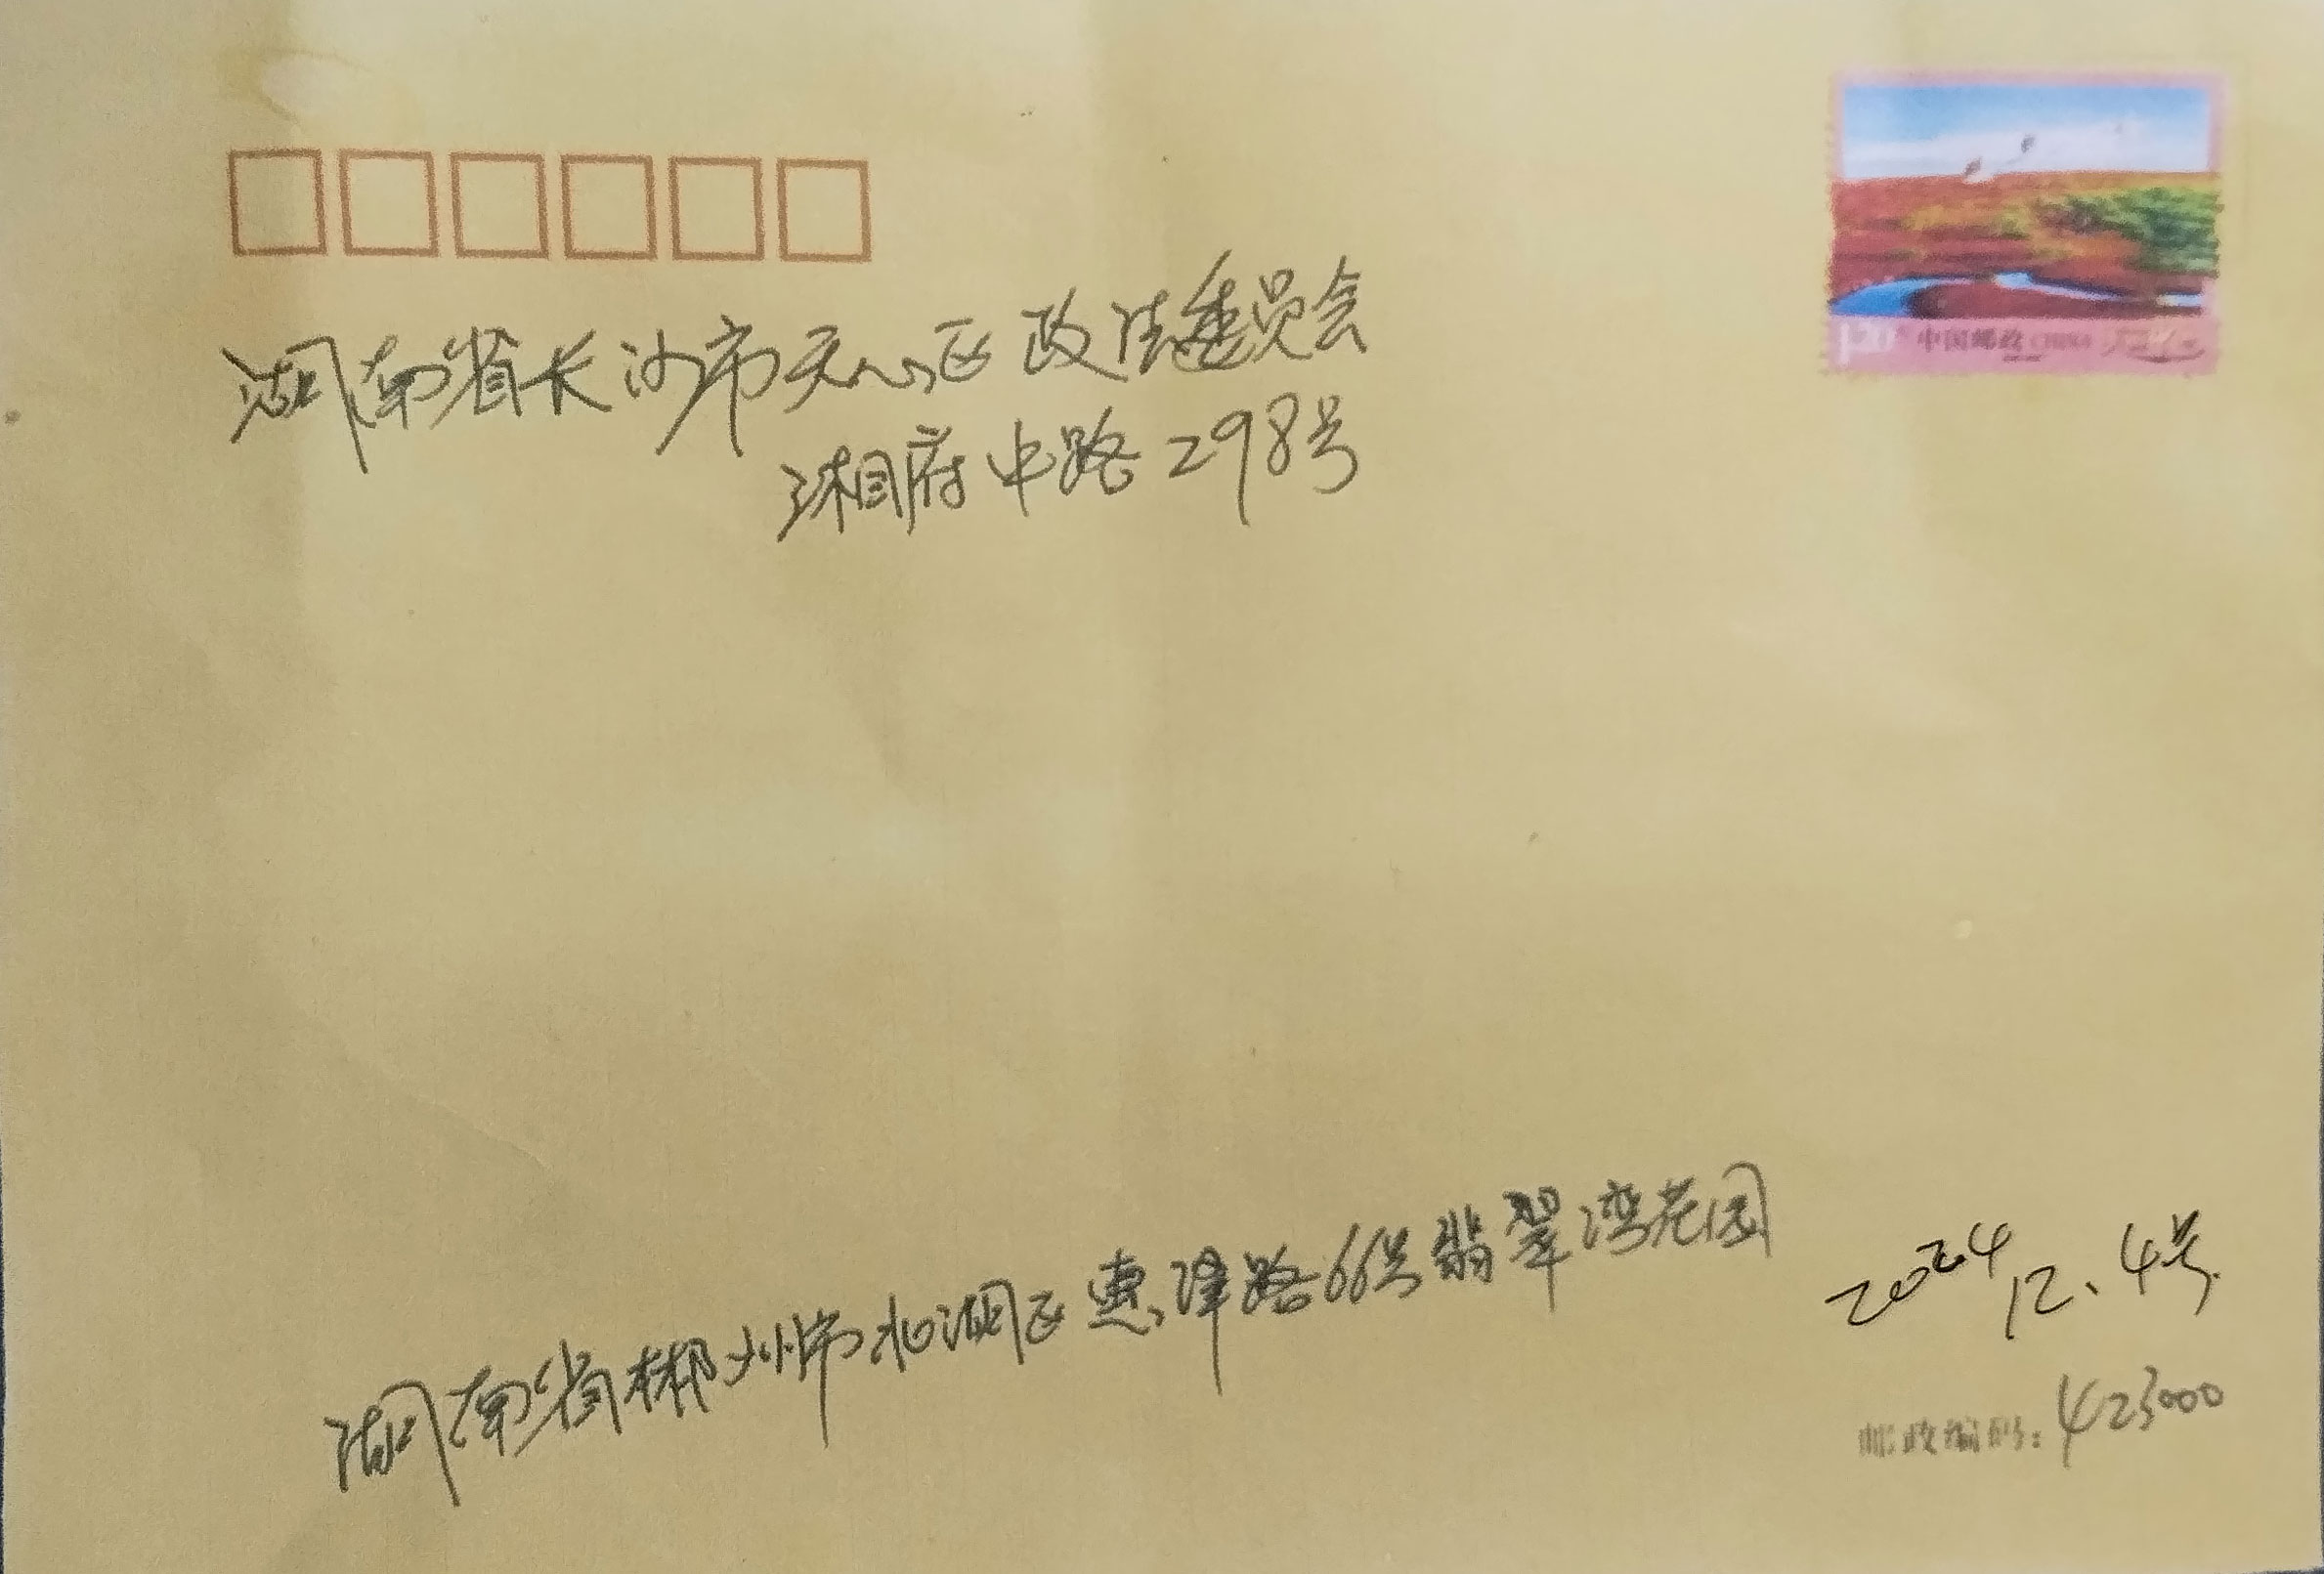 湖南省长沙市天心区政法委员会
湘府中路298号
中国邮政 CHINA
湖南省郴州市北湖区惠泽路66号翡翠湾花园
2024 12、4号
邮政编码:423000